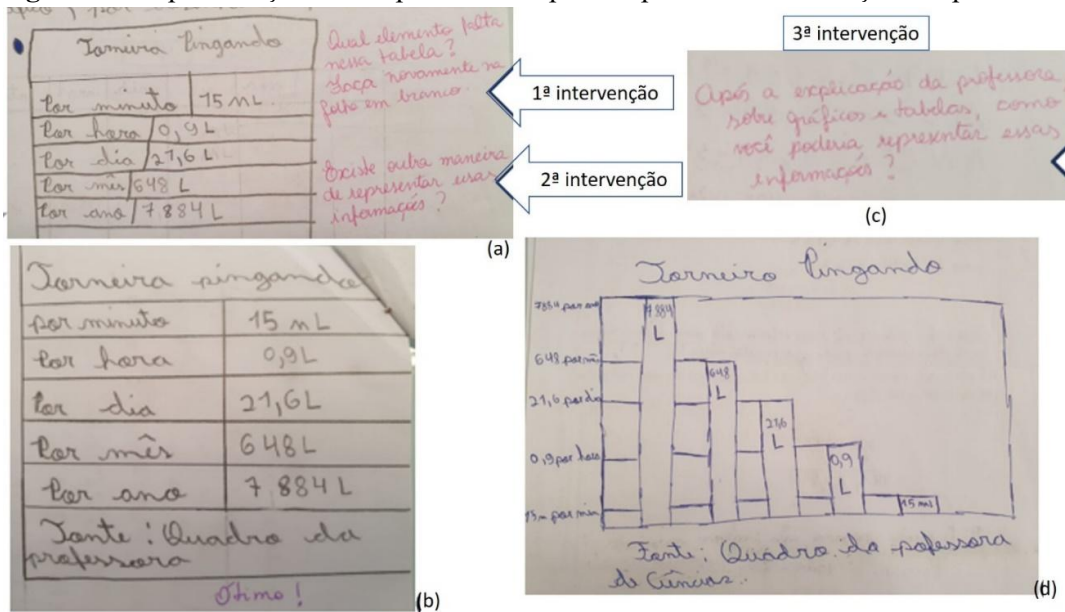 Torneira Pingando
Por minuto 15 mL
Por hora 0,9 L
Por dia 21,6 L
Por mês 648 L
Por ano 7.884 L
Qual elemento falta
nessa tabela?
Faça novamente na
folha em branco.
Existe outra maneira
de representar essas
informações?
1ª intervenção
2ª intervenção
(a)
3ª intervenção
Após a explicação da professora
sobre gráficos e tabelas, como
você poderia representar essas
informações?
(c)
Torneira pingando
por minuto 15 mL
Por hora 0,9L
Por dia 21,6L
Por mês 648L
Por ano 7 884 L
Fonte: Quadro da
professora
Ótimo!
(b)
Torneira Pingando
7884 por ano
7.884
L
648 por
648
L
21,6 por dia
21,6
L
0,9 por hora
0,9
L
15 por min
15
Fonte: Quadro da pofessora
de Ciências.
(d)